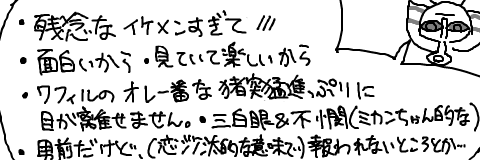 ・残念なイケメンすぎて///
・面白いから ・見ていて楽しいから
・ワフィルのオレ一番な猪突猛進っぷりに
目が離せません。・三白眼&不憫(ミカンちゃん的な)
・男前だけど、(恋沙汰的な意味で)報われないところとか…